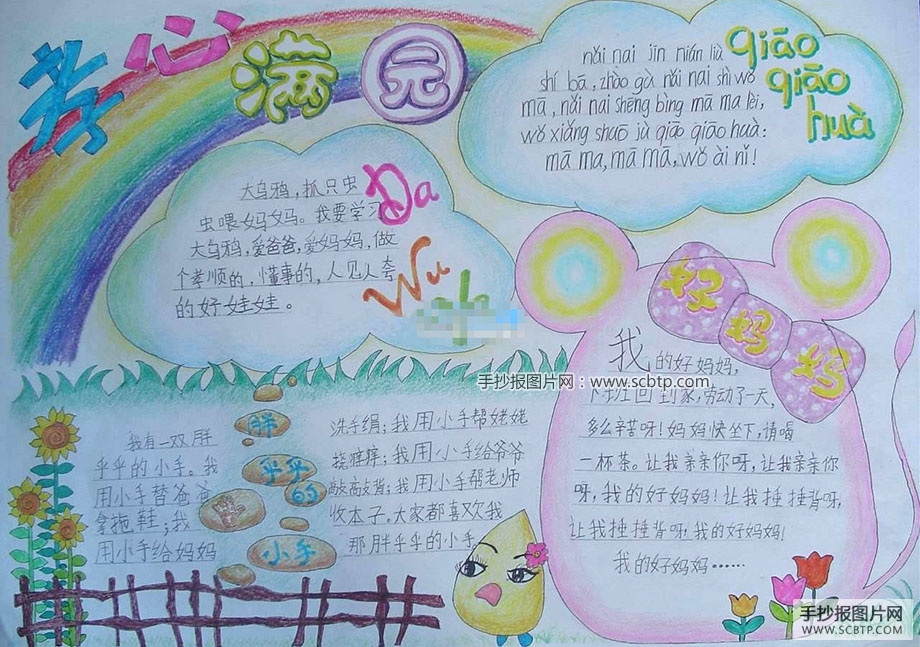 孝心满园
qiāo
qiāo
huà
nǎi nai jīn nián liù
shí bā, zhào gù nǎi nai shì wǒ
mā, nǎi nai shēng bìng mā ma lèi,
wǒ xiǎng shuō jù qiāo qiāo huà:
mā ma, mā mā, wǒ ài nǐ!
Da
Wu
大乌鸦，抓只虫
虫喂妈妈。我要学习
大乌鸦，爱爸爸，爱妈妈，做
个孝顺的，懂事的，人见人夸
的好娃娃。
好妈妈
我的好妈妈，
下班回到家，劳动了一天，
多么辛苦呀！妈妈快坐下，请喝
一杯茶。让我亲亲你呀，让我亲亲你
呀，我的好妈妈！让我捶捶背呀，
让我捶捶背呀！我的好妈妈！
我的好妈妈……
手抄报图片网：www.scbtp.com
胖
乎乎
的
小手
我有一双胖
乎乎的小手。我
用小手替爸爸
拿拖鞋；我
用小手给妈妈
洗手绢；我用小手帮姥姥
挠痒痒；我用小手给爷爷
敲敲背；我用小手帮老师
收本子。大家都喜欢我
那胖乎乎的小手。
手抄报图片网
WWW.SCBTP.COM